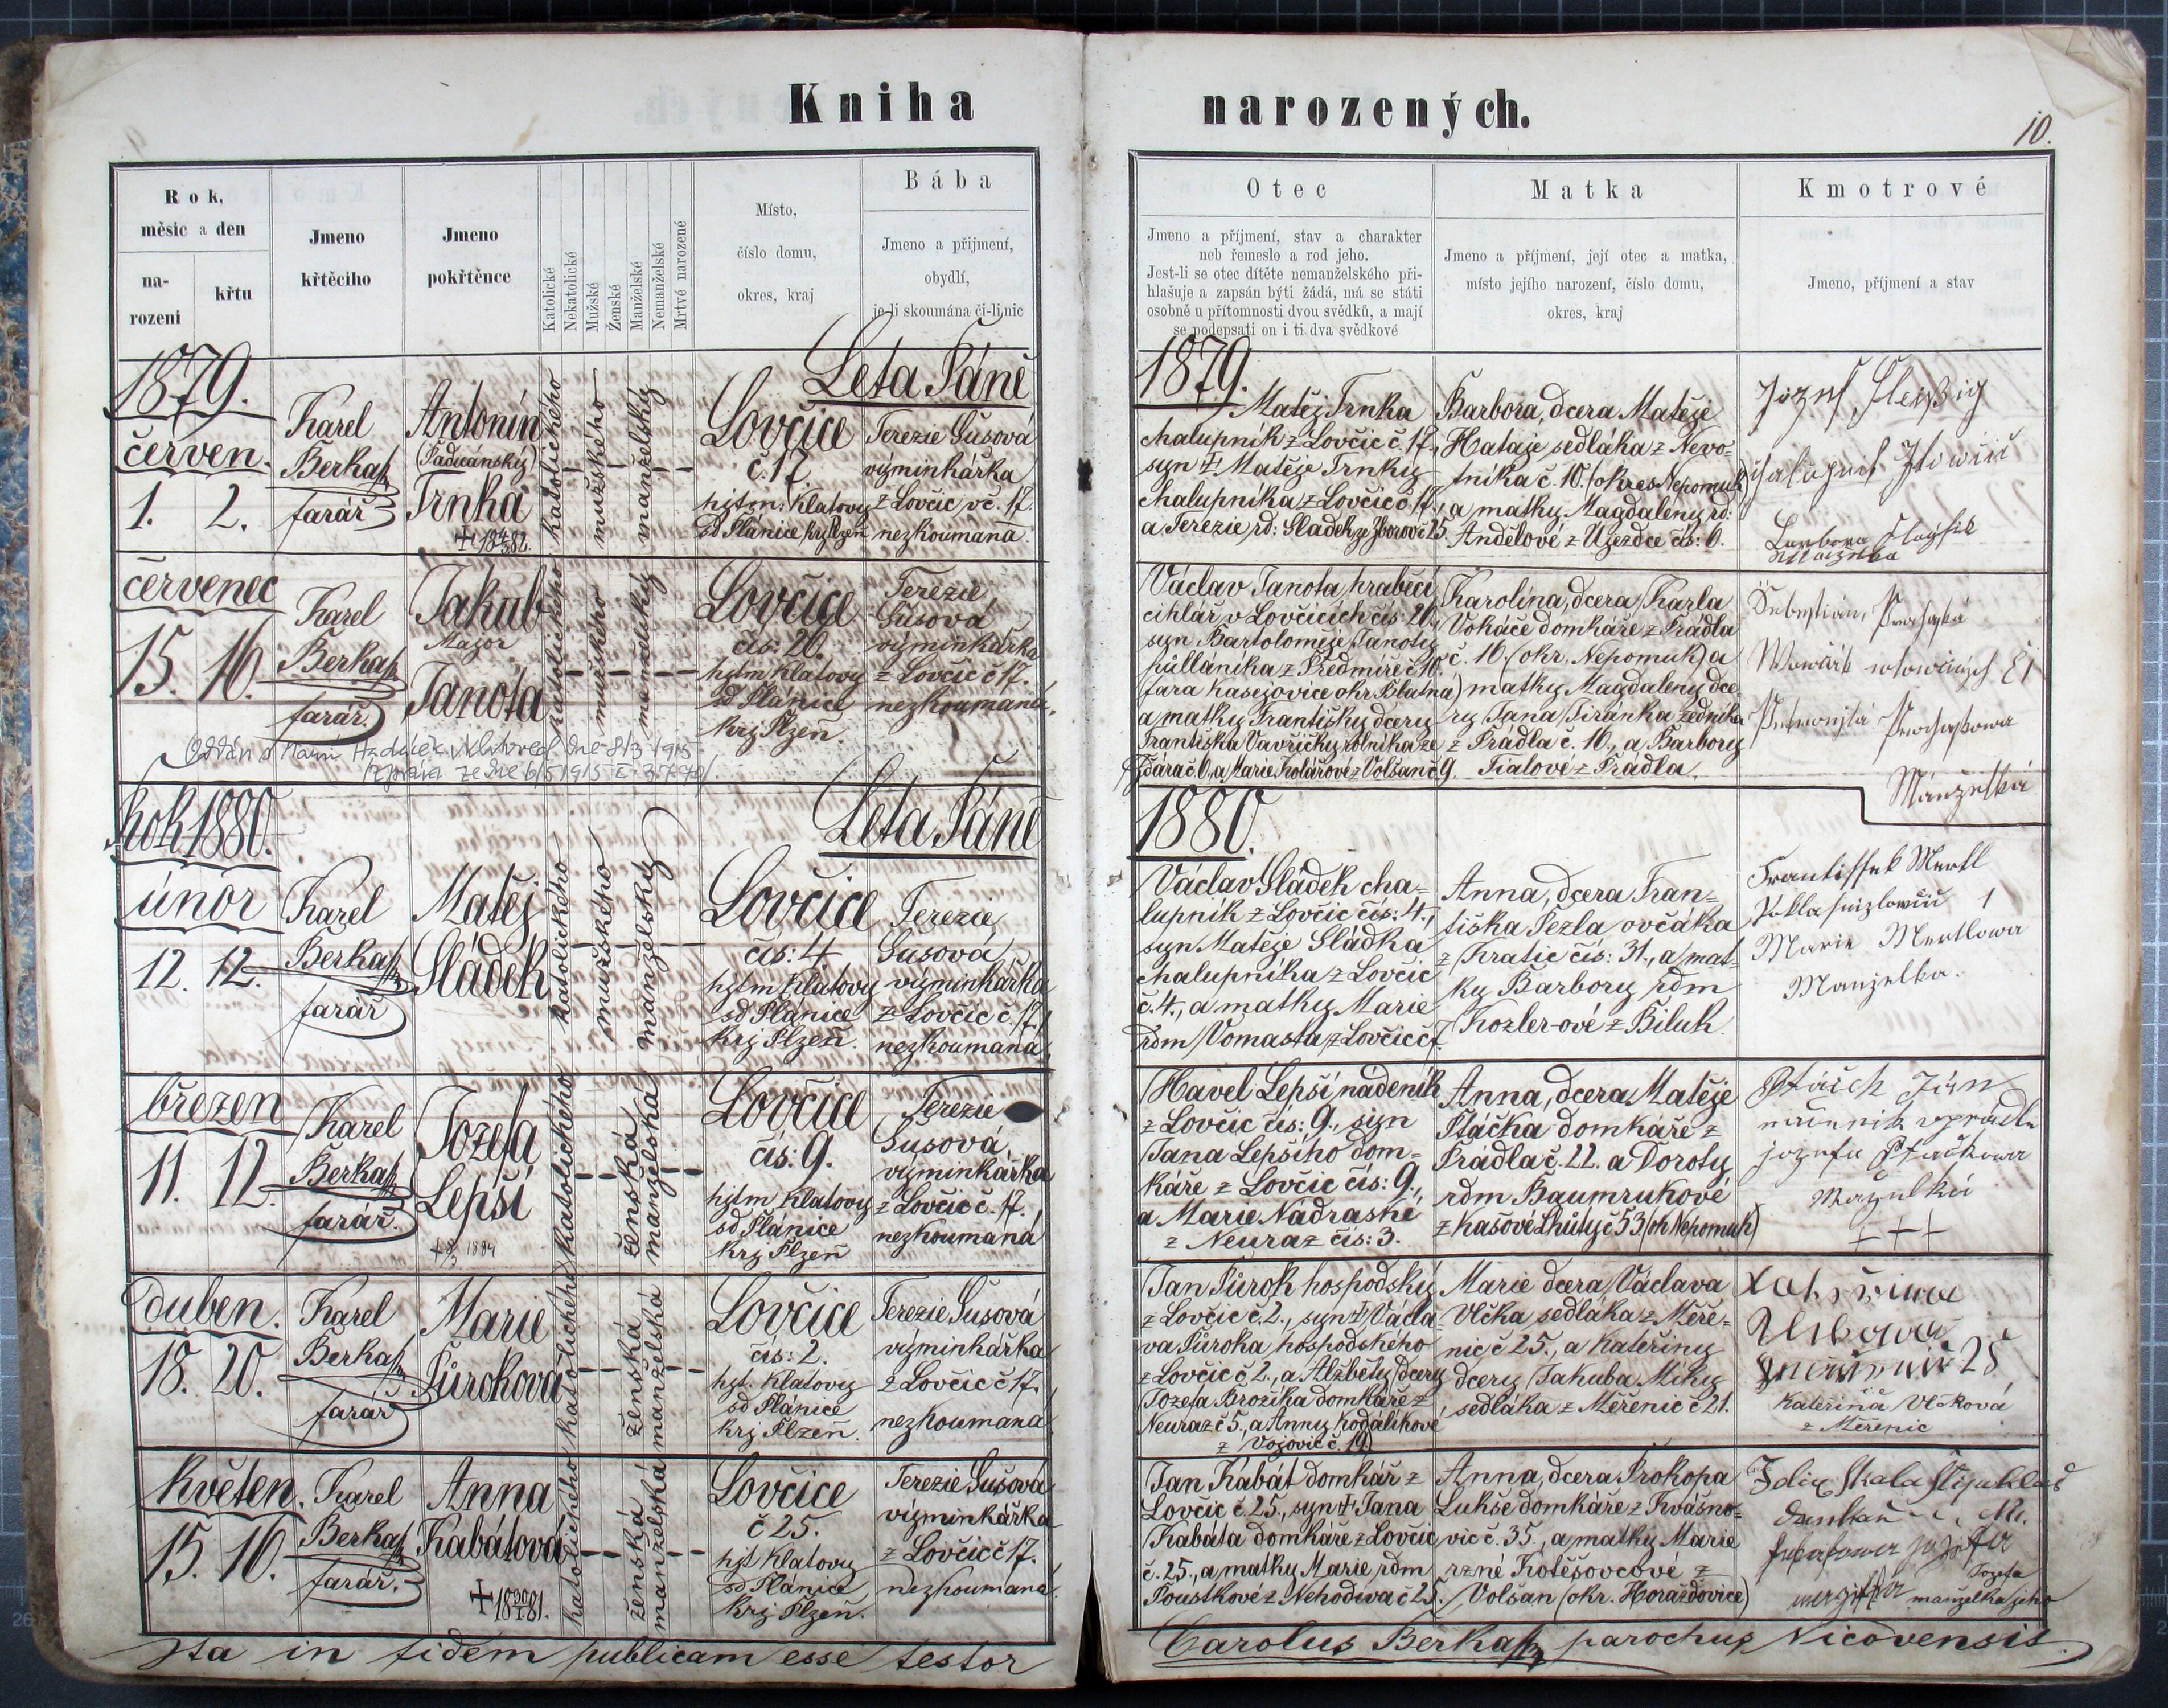 Kniha narozených.
10.
Rok, měsíc a den
narození
křtu
Jmeno křtěcího
Jmeno pokřtěnce
Katolické
Nekatolické
Mužské
Ženské
Manželské
Nemanželské
Mrtvé narozené
Místo,
číslo domu,
okres, kraj
Bába
Jmeno a přijmení,
obydlí,
je-li skoumána či-li nic
Otec
Jmeno a příjmení, stav a charakter
neb řemeslo a rod jeho.
Jest-li se otec dítěte nemanželského při-
hlašuje a zapsán býti žádá, má se státi
osobně u přítomnosti dvou svědků, a mají
se podepsati on i ti dva svědkové
Matka
Jmeno a příjmení, její otec a matka,
místo jejího narození, číslo domu,
okres, kraj
Kmotrové
Jmeno, příjmení a stav
1879.
Leta Páně
1879.
červen.
1. 2.
Karel
Berka
farář
Antonín
(Paduánský)
Trnka
katolického
mužského
manželský
Lovčice
č. 17.
hjtm: Klatovy
sd Plánice krj Plzeň
Terezie Gusová
výminkářka
z Lovčic č. 17.
nezkoumaná.
Matěj Trnka
chalupník z Lovčic č. 17.,
syn ✝ Matěje Trnky
chalupníka z Lovčic č. 17.,
a Terezie rd: Sládek ze Zborov č 25.
Barbora, dcera Matěje
Hataje sedláka z Nevo-
tníka č. 10. (okres Nepomuk)
a matky Magdaleny rd:
Andělové z Újezdce čís: 6.
červenec
15. 16.
Karel
Berka
farář.
Jakub
Major
Janota
katolického
mužského
manželský
Lovčice
čís: 20.
hjtm Klatovy
sd Plánice
krj Plzeň
Terezie
Gusová
výminkářka
z Lovčic č 17.
nezkoumaná.
Václav Janota hraběcí
cihlář v Lovčicích čís: 20.,
syn Bartoloměje Janoty
půllánika z Předmíře č. 10.
(fara Kasejovice okr Blatna)
a matky Františky dcery
Františka Vavřičky rolníka ze
Ždára č 6., a Marie Kolářové z Volšan č 9.
Karolina, dcera Karla
Vokáče domkáře z Prádla
č. 16. (okr. Nepomuk) a
matky Magdaleny dce-
ry Jana Jiránka zedníka
z Prádla č. 16., a Barbory
Fialové z Prádla.
Manželka
Rok 1880.
Leta Páně
1880.
únor
12. 12.
Karel
Berka
farář
Matěj
Sládek
katolického
mužského
manželský
Lovčice
čís: 4
hjtm Klatovy
sd Plánice
krj Plzeň.
Terezie
Gusová
výminkářka
z Lovčic č 17,
nezkoumaná
Václav Sládek cha-
lupník z Lovčic čís: 4.,
syn Matěje Sládka
chalupníka z Lovčic
č. 4., a matky Marie
rdm Vomasta z Lovčic č 7.
Anna, dcera Fran-
tiška Pezla ovčáka
z Kratic čís: 31., a mat-
ky Barbory rdm
Kozler-ové z Biluk.
Frantissek Mertl
Marie Mertlowa
Manzelka.
březen
11. 12.
Karel
Berka
farář.
Jozefa
Lepší
katolického
ženská
manželská
Lovčice
čís: 9.
hjtm Klatovy
sd Plánice
krj Plzeň
Terezie
Gusová
výminkářka
z Lovčic č. 17.,
nezkoumaná
Havel Lepší nádeník
z Lovčic čís: 9., syn
Jana Lepšího dom-
káře z Lovčic čís: 9.,
a Marie Nádraské
z Neuraz čís: 3.
Anna, dcera Matěje
Ptáčka domkáře z
Prádla č. 22. a Doroty
rdm Baumrukové
z Kašové Lhůty č 53 (ok Nepomuk)
+ + +
duben.
18. 20.
Karel
Berka
farář
Marie
Půroková
katolického
ženská
manželská
Lovčice
čís: 2.
hjt. Klatovy
sd Plánice
krj Plzeň.
Terezie Gusová
výminkářka
z Lovčic č 17.
nezkoumaná
Jan Půrok hospodský
z Lovčic č. 2., syn ✝ Václa-
va Půroka hospodského
z Lovčic č. 2., a Alžběty dcery
Jozefa Brožíka domkáře z
Neuraz č 5., a Anny Kodálikové
z Vojovic č. 19)
Marie dcera Václava
Vlčka sedláka z Měře-
nic č 25., a Kateřiny
dcery Jakuba Míky
sedláka z Měřenic č 21.
Kateřina Vlčková
z Měřenic
květen.
15. 16.
Karel
Berka
farář.
Anna
Kabátová
katolického
ženská
manželská
Lovčice
č 25.
hjt Klatovy
sd Plánice
krj Plzeň.
Terezie Gusová
výminkářka
z Lovčic č 17.
nezkoumaná.
Jan Kabát domkář z
Lovčic č. 25., syn ✝ Jana
Kabáta domkáře z Lovčic
č. 25., a matky Marie rdm
Poustkové z Nehodiva č 25.
Anna, dcera Prokopa
Lukše domkáře z Kvášno-
vic č. 35., a matky Marie
rzné Kotěšovcové z
Volšan (okr. Horažďovice)
Jozefa
manželka jeho
Ita in fidem publicam esse testor
Carolus Berka parochus Nicovensis